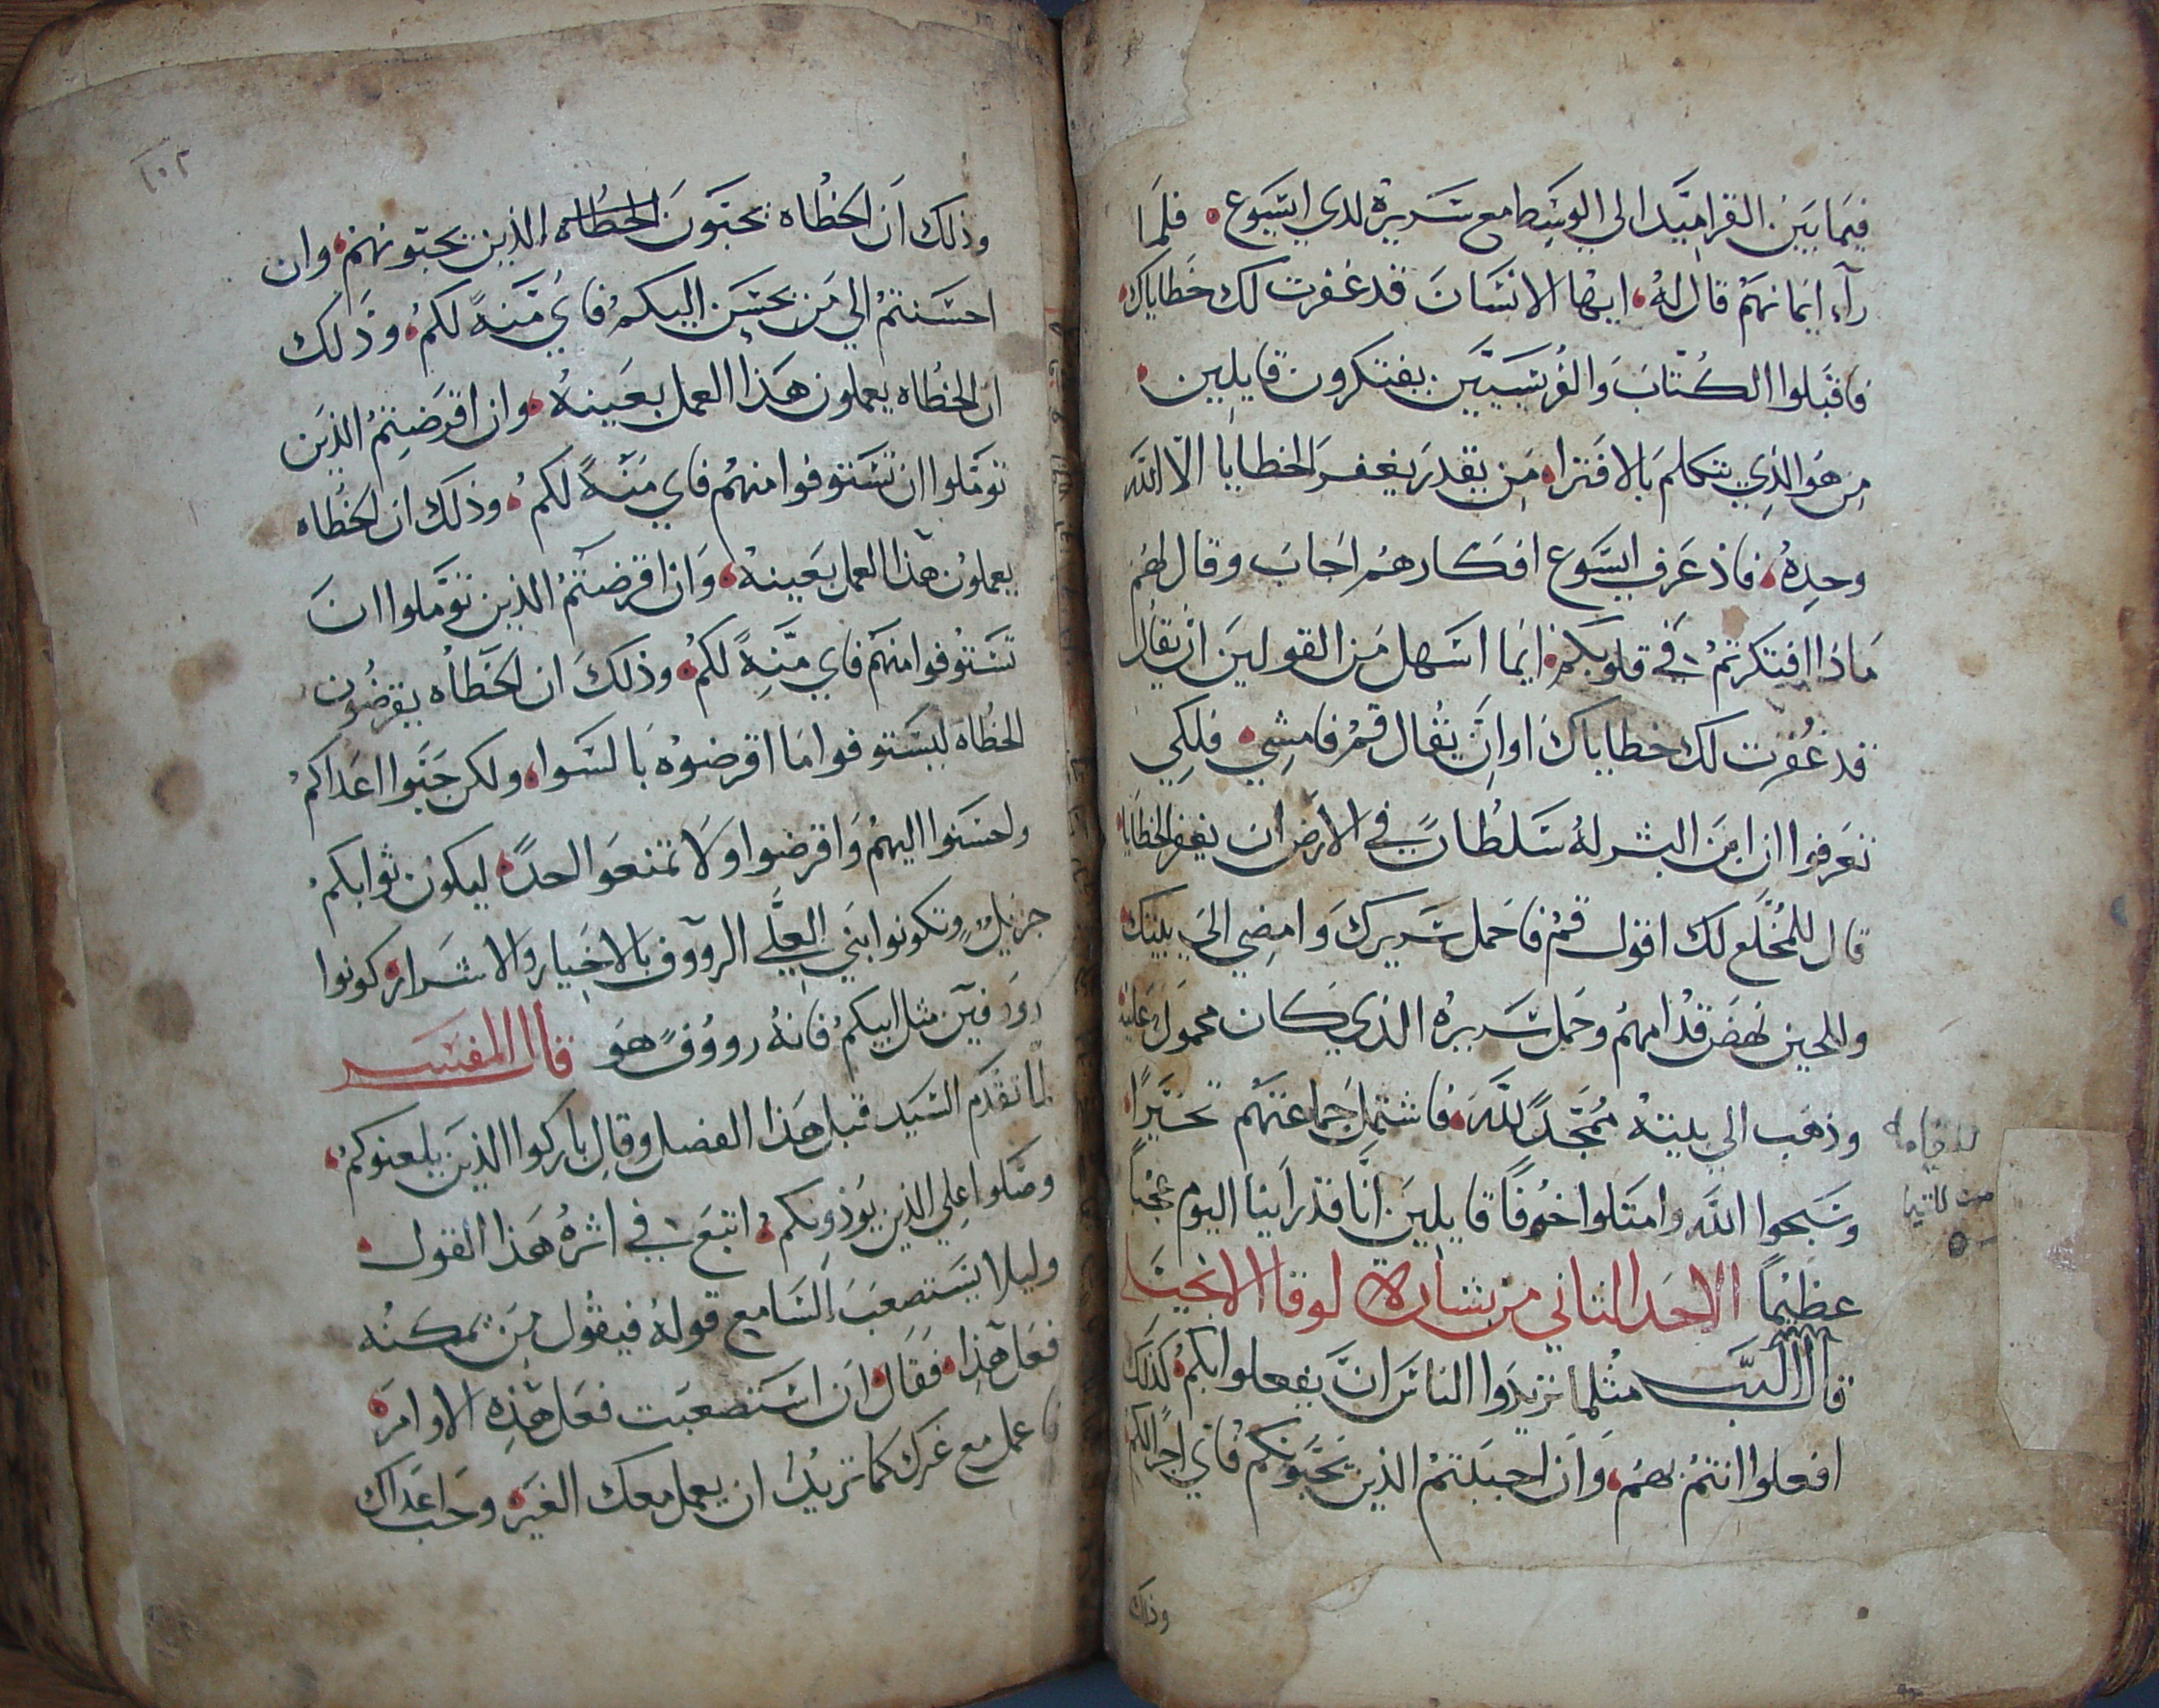 فيما بين القراميد الي الوسط مع سريره لدي ايسوع فلما
رآء ايمانهم قال له ايها الانسان قد غفرت لك خطاياك
فاقبلوا الكتاب والفريسيين يفتكرون قايلين
من هو الذي يتكلم بالافتراء من يقدر يغفر الخطايا الا الله
وحده فاذ عرف ايسوع افكارهم اجاب وقال لهم
ماذا افتكرتم في قلوبكم ايما اسهل من القولين ان يقال
قد غفرت لك خطاياك او ان يقال قم فامشي فلكي
تعرفوا ان ابن البشر له سلطان في الارض ان يغفر الخطايا
قال للمخلع لك اقول قم فاحمل سريرك وامضي الي بيتك
وللحين نهض قدامهم وحمل سريره الذي كان محمول عليه
وذهب الي بيته ممجدا لله فاشتمل جماعتهم تحيرا
وسبحوا الله وامتلوا خوفا قايلين انا قد راينا اليوم عجبا
عظيما الاحد الثاني من بشارة لوقا الانجيلي
قال الرب مثلما تريدوا الناس ان يفعلوا بكم كذلك
افعلوا انتم بهم وان احببتم الذين يحبونكم فاي اجرا لكم
وذلك
١٠٢
وذلك ان الخطاه يحبون الخطاه الذين يحبونهم وان
احسنتم الي من يحسن اليكم فاي منة لكم وذلك
ان الخطاه يعملون هذا العمل بعينه وان اقرضتم الذين
توملوا ان تستوفوا منهم فاي منة لكم وذلك ان الخطاه
يعملون هذا العمل بعينه وان اقرضتم الذين توملوا ان
تستوفوا منهم فاي منة لكم وذلك ان الخطاه يقرضون
الخطاه ليستوفوا ما اقرضوه بالسواء ولكن حبوا اعداكم
واحسنوا اليهم واقرضوا ولا تمنعوا احدا ليكون ثوابكم
جزيل وتكونوا بني العلي الرووف بالاخيار والاشرار كونوا
روفين مثل ابيكم فانه رووف هو قال المفسر
لما تقدم السيد قبل هذا الفصل وقال باركوا الذين يلعنوكم
وصلوا علي الذين يوذونكم اتبع في اثره هذا القول
وليلا يستصعب السامع قوله فيقول من يمكنه
فعل هذا فقال ان استصعبت فعل هذه الاوامر
فاعمل مع غيرك كما تريد ان يعمل معك الغير وحب اعداك